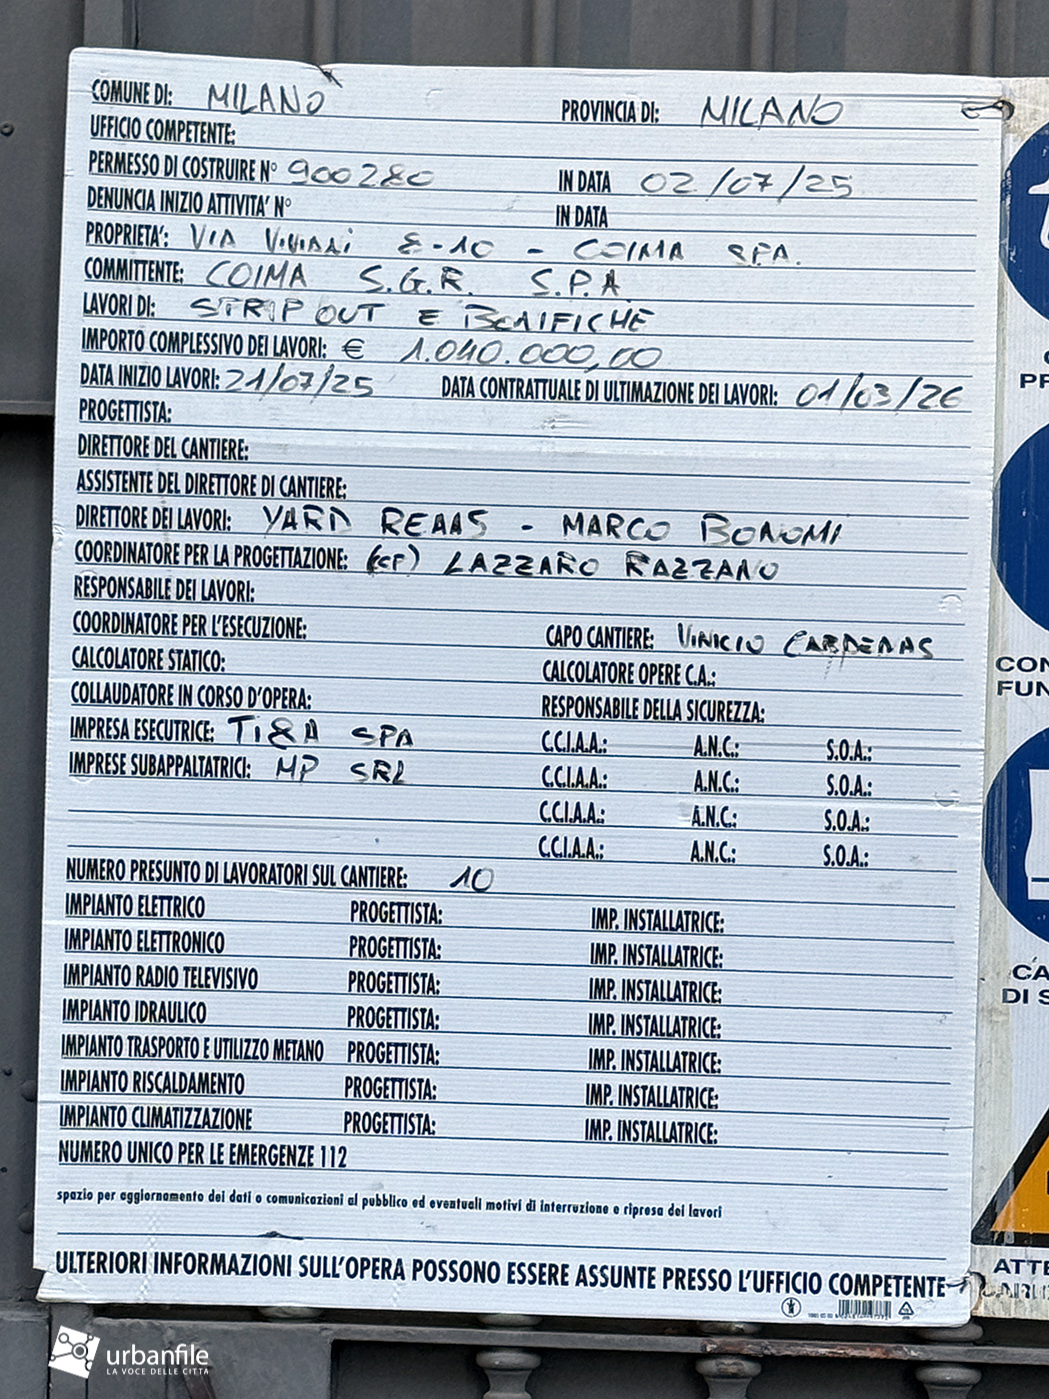 COMUNE DI: MILANO PROVINCIA DI: MILANO
UFFICIO COMPETENTE:
PERMESSO DI COSTRUIRE N° 900280 IN DATA 02/07/25
DENUNCIA INIZIO ATTIVITA' N° IN DATA
PROPRIETA': VIA VIVIANI 8-10 - COIMA SPA.
COMMITTENTE: COIMA S.G.R. S.P.A
LAVORI DI: STRIP OUT E BONIFICHE
IMPORTO COMPLESSIVO DEI LAVORI: € 1.040.000,00
DATA INIZIO LAVORI: 21/07/25 DATA CONTRATTUALE DI ULTIMAZIONE DEI LAVORI: 01/03/26
PROGETTISTA:
DIRETTORE DEL CANTIERE:
ASSISTENTE DEL DIRETTORE DI CANTIERE:
DIRETTORE DEI LAVORI: YARD REAAS - MARCO BONOMI
COORDINATORE PER LA PROGETTAZIONE: (CSP) LAZZARO RAZZANO
RESPONSABILE DEI LAVORI:
COORDINATORE PER L'ESECUZIONE: CAPO CANTIERE: VINICIO CARDENAS
CALCOLATORE STATICO: CALCOLATORE OPERE C.A.:
COLLAUDATORE IN CORSO D'OPERA: RESPONSABILE DELLA SICUREZZA:
IMPRESA ESECUTRICE: TI&A SPA C.C.I.A.A.: A.N.C.: S.O.A.:
IMPRESE SUBAPPALTATRICI: MP SRL C.C.I.A.A.: A.N.C.: S.O.A.:
C.C.I.A.A.: A.N.C.: S.O.A.:
C.C.I.A.A.: A.N.C.: S.O.A.:
NUMERO PRESUNTO DI LAVORATORI SUL CANTIERE: 10
IMPIANTO ELETTRICO PROGETTISTA: IMP. INSTALLATRICE:
IMPIANTO ELETTRONICO PROGETTISTA: IMP. INSTALLATRICE:
IMPIANTO RADIO TELEVISIVO PROGETTISTA: IMP. INSTALLATRICE:
IMPIANTO IDRAULICO PROGETTISTA: IMP. INSTALLATRICE:
IMPIANTO TRASPORTO E UTILIZZO METANO PROGETTISTA: IMP. INSTALLATRICE:
IMPIANTO RISCALDAMENTO PROGETTISTA: IMP. INSTALLATRICE:
IMPIANTO CLIMATIZZAZIONE PROGETTISTA: IMP. INSTALLATRICE:
NUMERO UNICO PER LE EMERGENZE 112
spazio per aggiornamento dei dati o comunicazioni al pubblico ed eventuali motivi di interruzione e ripresa dei lavori
ULTERIORI INFORMAZIONI SULL'OPERA POSSONO ESSERE ASSUNTE PRESSO L'UFFICIO COMPETENTE
PR
CON
FUN
CA
DI S
ATTE
urbanfile
LA VOCE DELLE CITTÀ